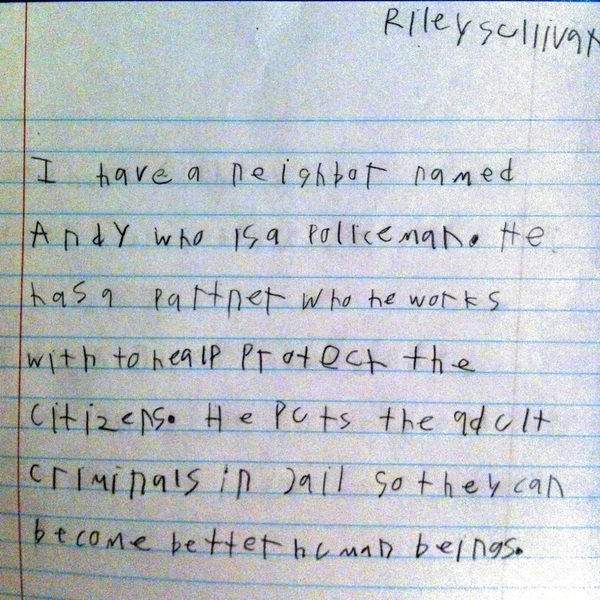 Riley Sullivan
I have a neighbor named
Andy who is a policeman. He
has a partner who he works
with to healp protect the
citizens. He puts the adult
criminals in Jail so they can
become better human beings.